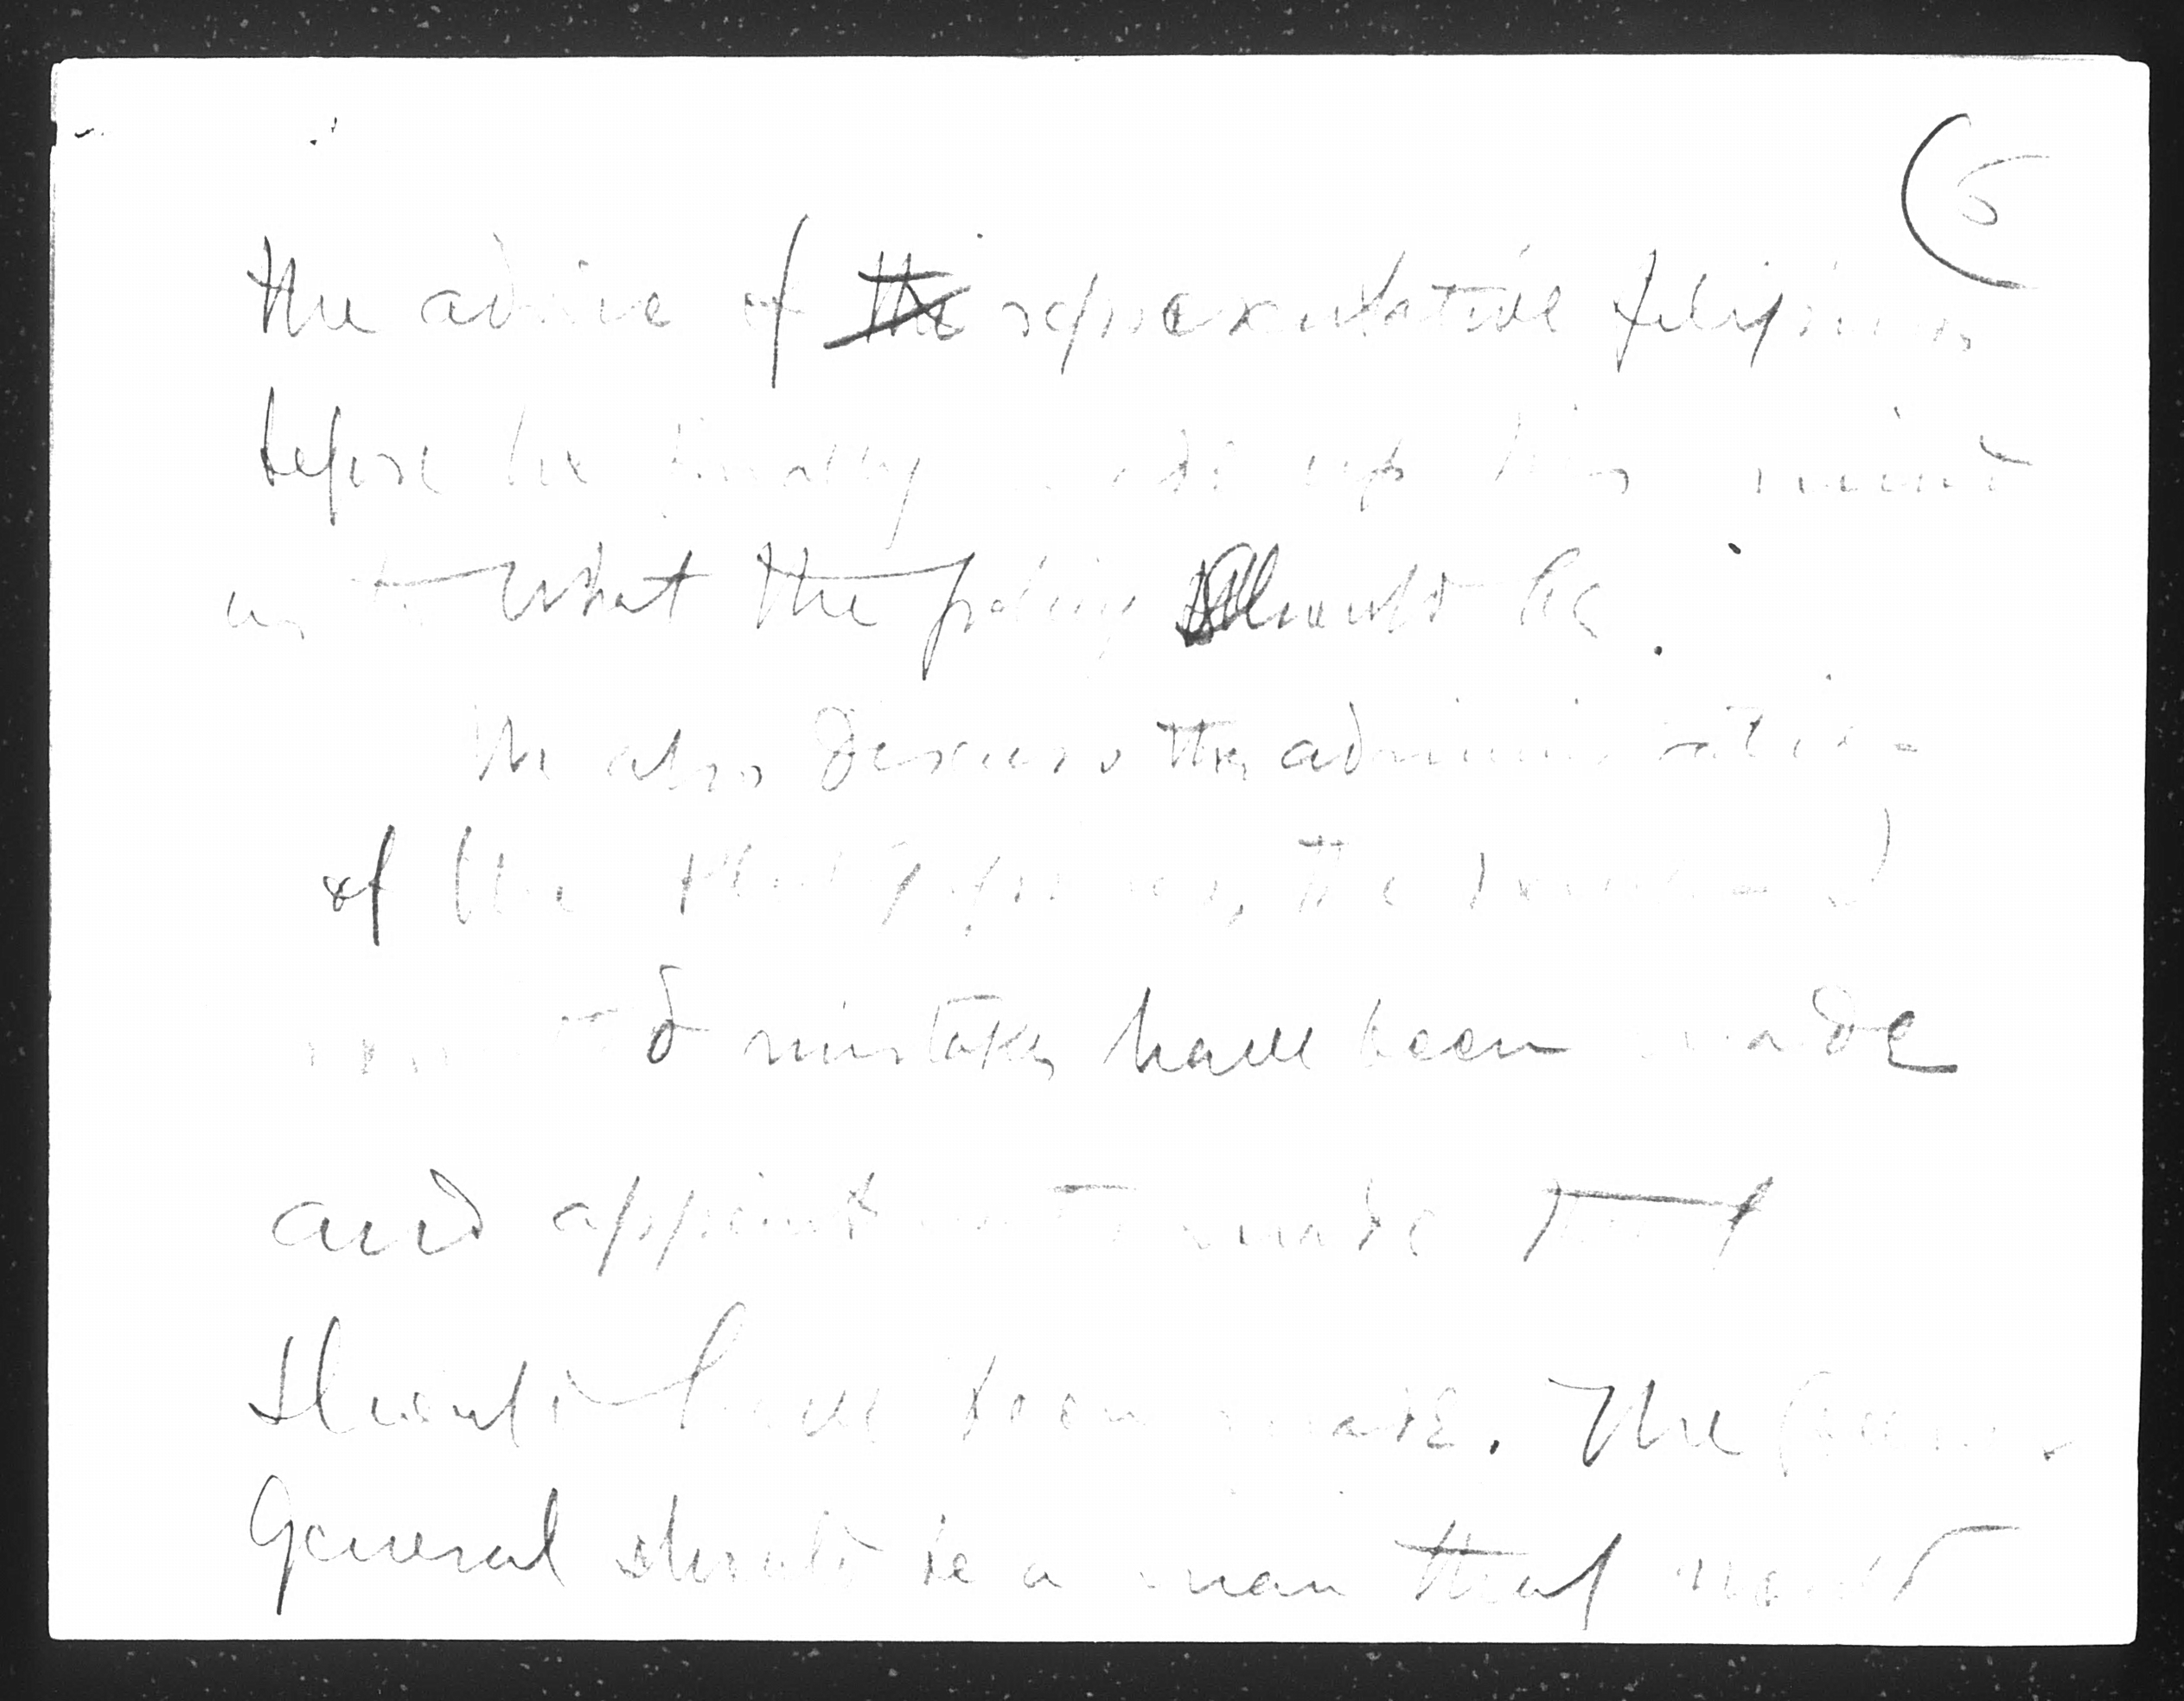 (5
the advice of the representative Filipinos
before he finally made up his mind
as to what the policy should be.
We also discuss the administration
of the Philippines, the
mistakes have been made
and appointments made that
should have been made. The Governor
General should be a man that would